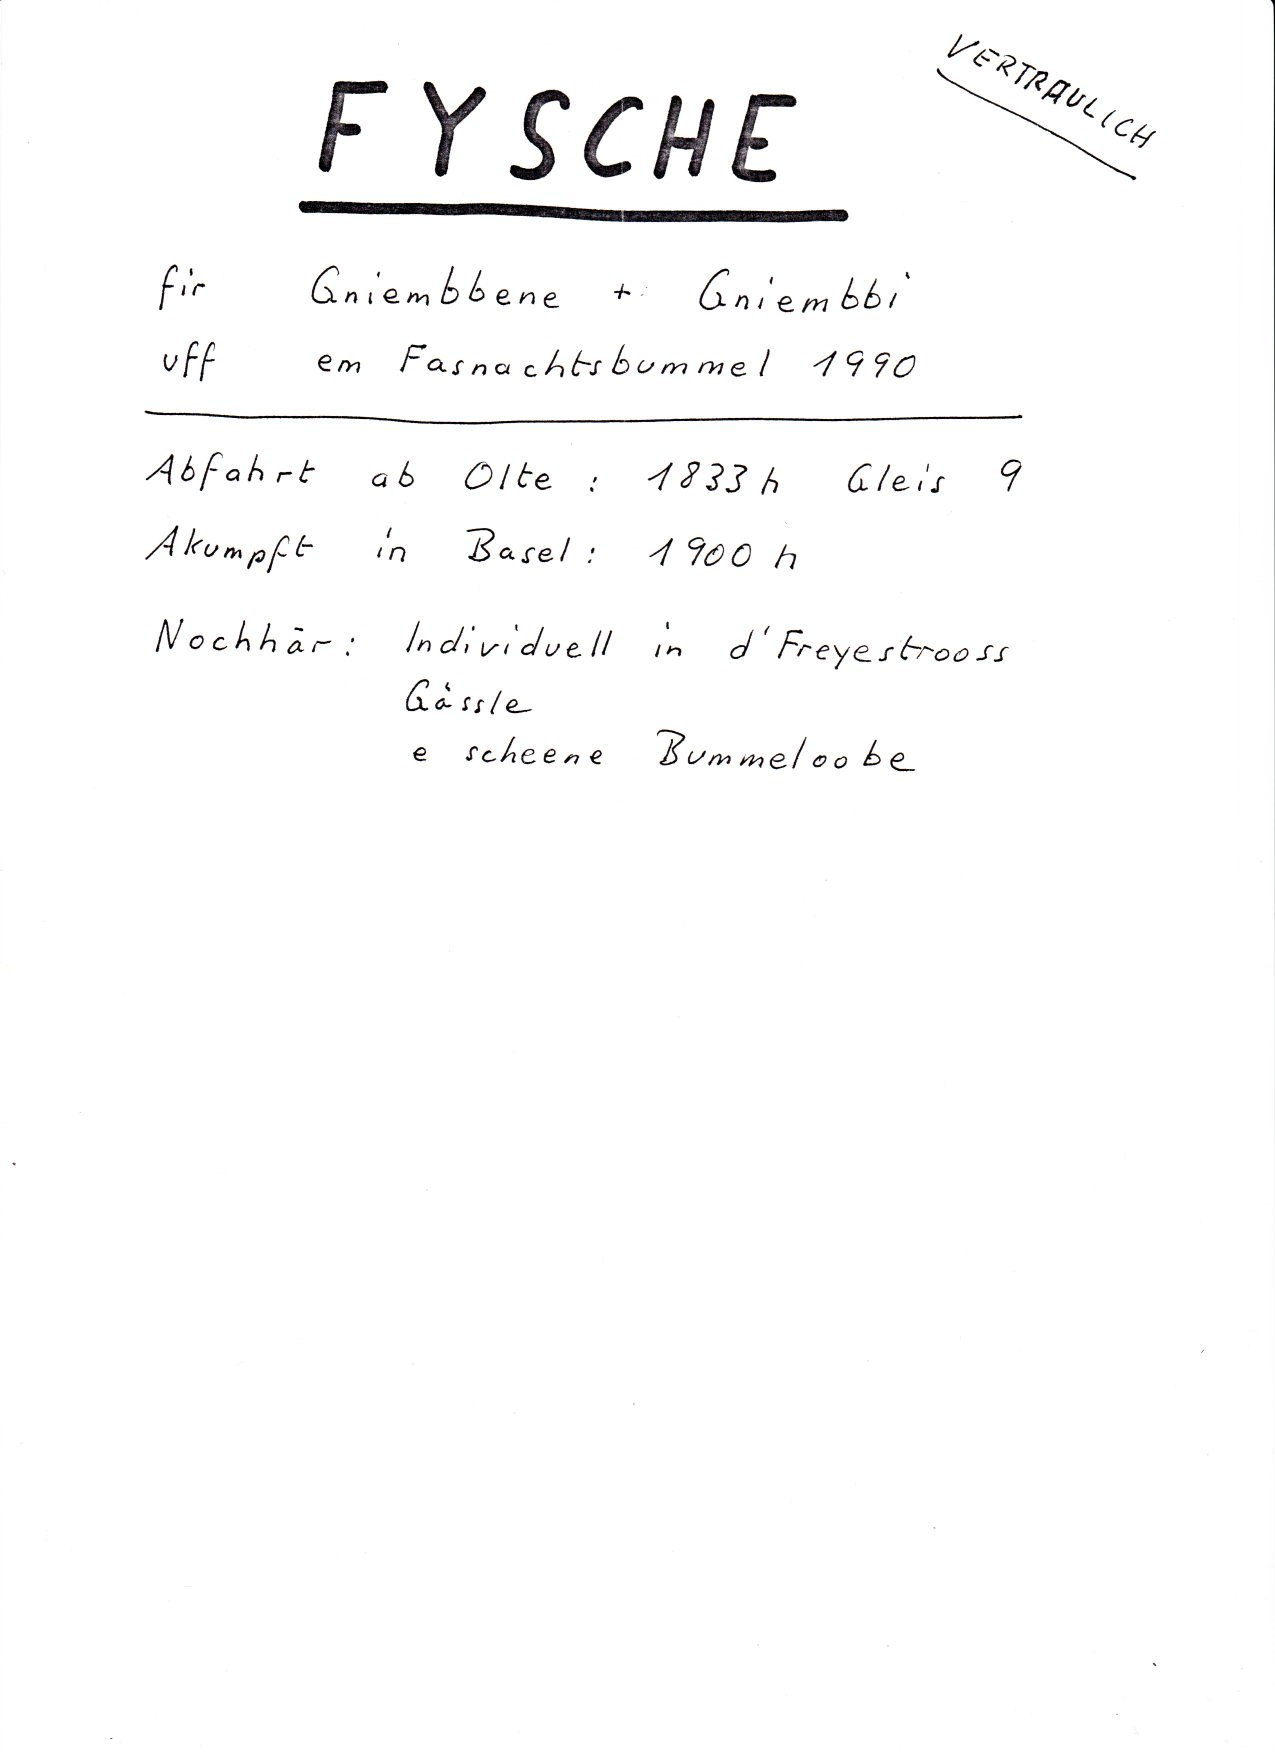 VERTRAULICH
FYSCHE
fir Gniembbene + Gniembbi
uff em Fasnachtsbummel 1990
Abfahrt ab Olte : 1833 h Gleis 9
Akumpft in Basel : 1900 h
Nochhär : Individuell in d'Freyestrooss
Gässle
e scheene Bummeloobe